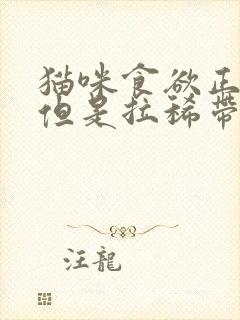 猫咪食欲正
但是拉稀带
汪龍